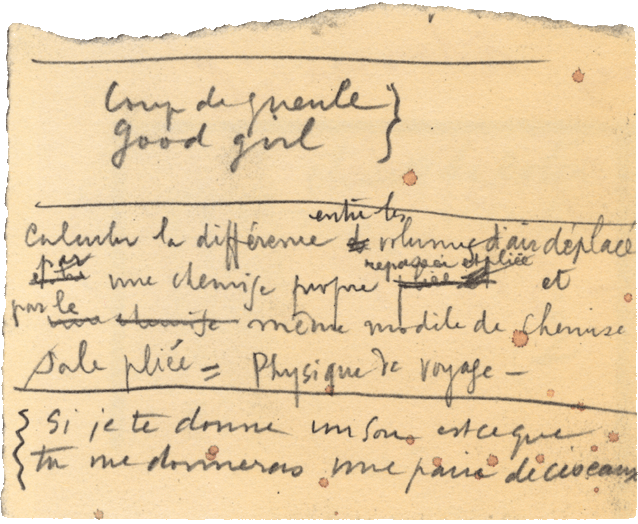 Coup de gueule
Good girl
entre les
Calculer la différence volumes d'air déplacé
par repassée et pliée
une chemise propre et
par le
même modèle de chemise
sale pliée = Physique de voyage —
Si je te donne un sou, est ce que
tu me donneras une paire de ciseaux